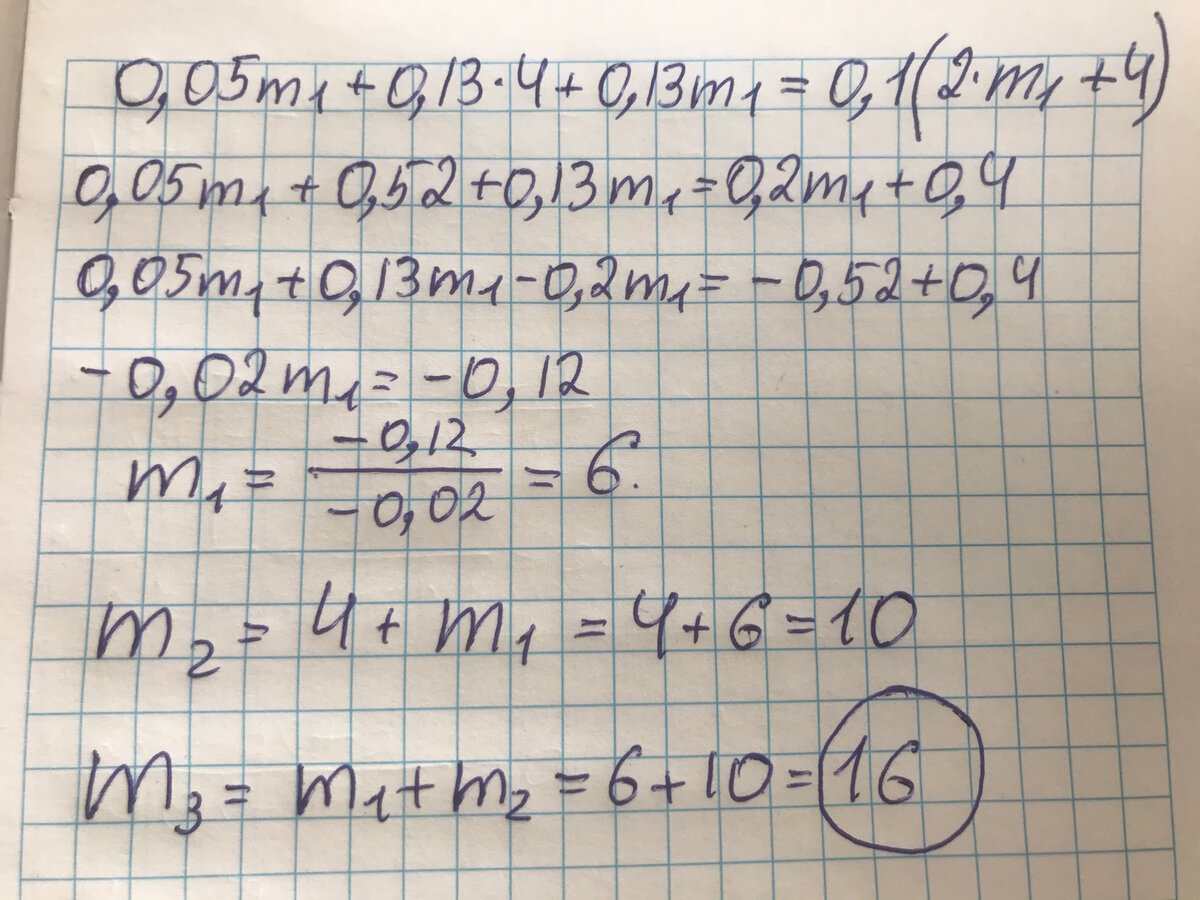 0,05m₁ + 0,13·4 + 0,13m₁ = 0,1(2·m₁ + 4)
0,05m₁ + 0,52 + 0,13m₁ = 0,2m₁ + 0,4
0,05m₁ + 0,13m₁ - 0,2m₁ = - 0,52 + 0,4
- 0,02m₁ = -0,12
m₁ = -0,12 / -0,02 = 6.
m₂ = 4 + m₁ = 4 + 6 = 10
m₃ = m₁ + m₂ = 6 + 10 = 16